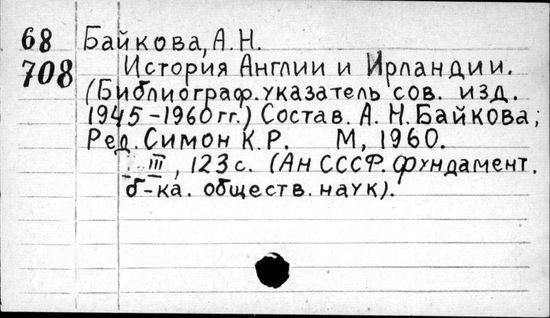 68 Байкова, А. Н.
708 История Англии и Ирландии.
(Библиограф. указатель сов. изд.
1945-1960 гг.) Состав. А. Н. Байкова;
Ред. Симон К. Р. М, 1960.
III, 123 с. (Ан СССР. фундамент.
б-ка. обществ. наук).